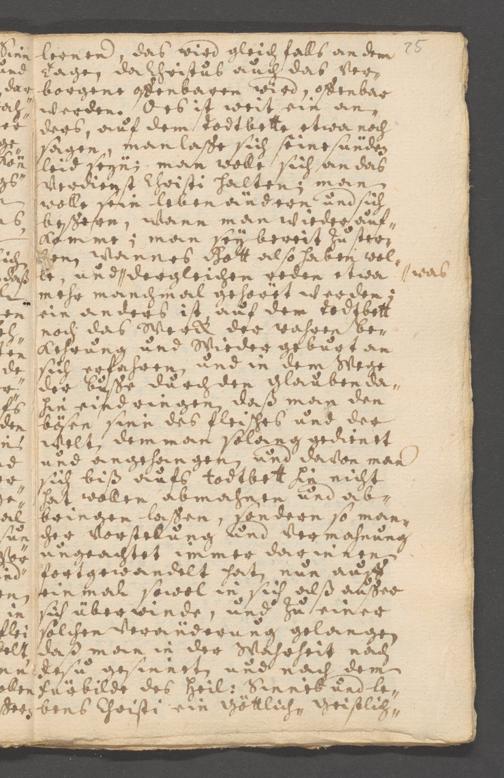 25
lernen, das wird gleich falls an dem
Tage, da Christus auch das Ver-
borgene offenbaren wird, offenbar
werden. Es ist weit ein an-
ders, auf dem todtbette etwa noch
sagen, man lasse sich seine sünden
leid seyn; man wolle sich an das
Verdienst Christi halten; man
wolle sein leben ändern und sich
bessern, wann man wieder auf-
komme; man sey bereit zu ster-
ben, wann es Gott also haben wol-
le, und dergleichen reden etwa // was
mehr manchmal gehöret werden;
ein anders ist, auf dem todtbett
noch das Werck der wahren be-
kehrung und Wieder geburt an
sich erfahren, und in dem Wege
der busse durch den glauben da-
hin eindringen, daß man den
bösen sinn des fleisches und der
welt, dem man solang gedienet
und angehangen, und davon man
sich biß aufs todtbett hin nicht
hat wollen abmahnen und ab-
bringen lassen, sondern so man-
cher Vorstellung und Vermahnung
ungeachtet immer darinnen
fortgewandelt hat, nun auff
einmal sowol in sich alß ausser
sich überwinde, und zu einer
solchen Veränderung gelange,
daß man in der Wahrheit nach
Jesu gesinnet, und nach dem
furbilde des heil: Sinnes und le-
bens Christi ein göttlich- geistlich-